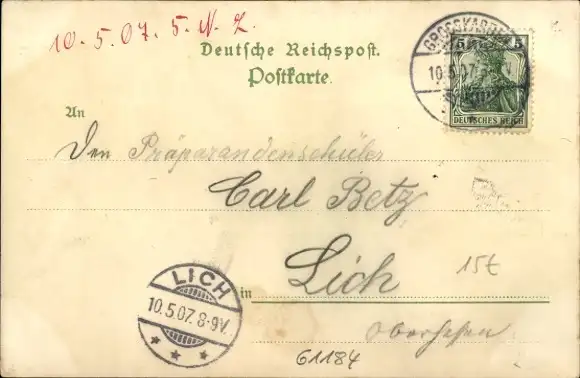 10.5.07. 5. N. Z.
Deutsche Reichspost.
Postkarte.
5 5
10.5.07
DEUTSCHES REICH
An
Den Präparandenschüler
Carl Betz
in Lich
15t
Oberhessen
LICH
10.5.07. 8-9V.
61184